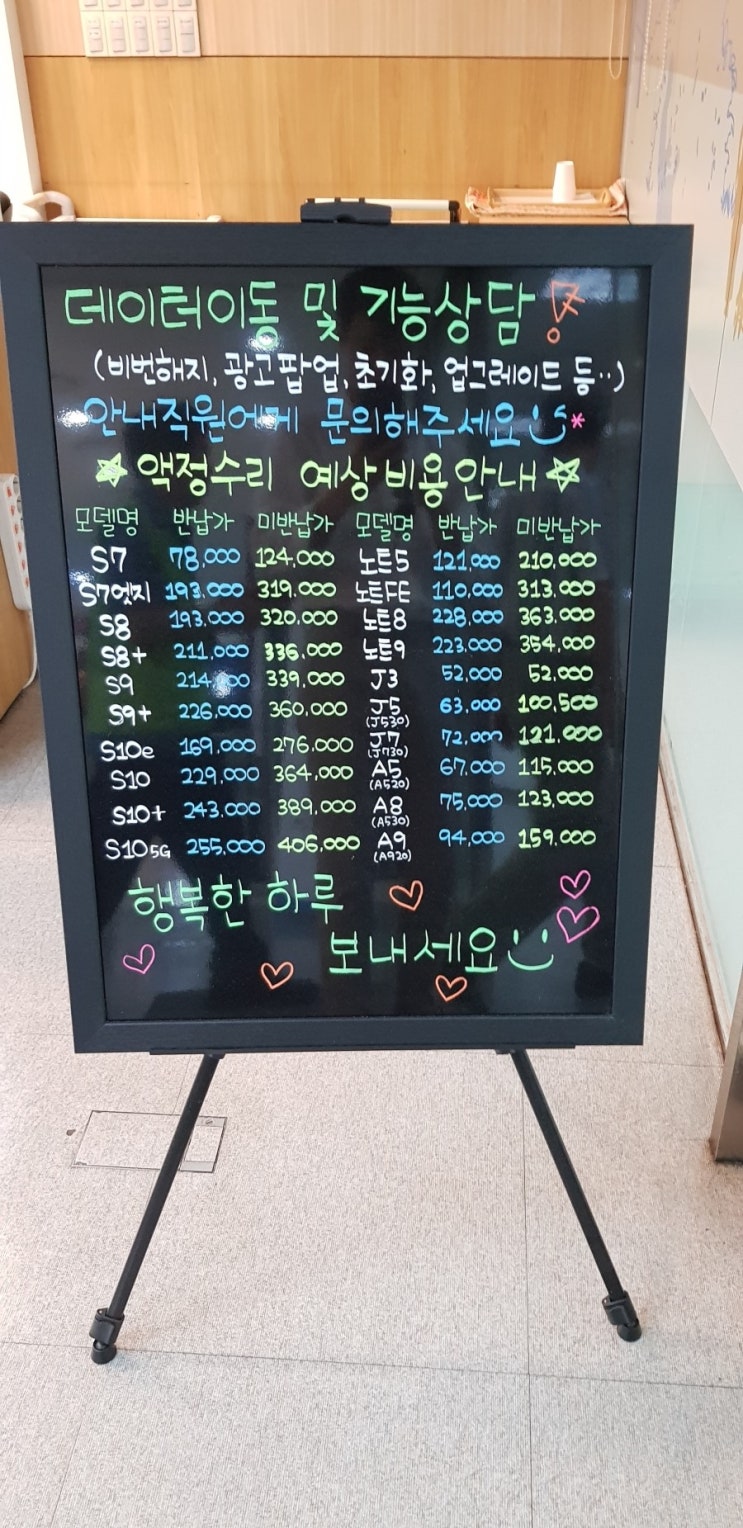 데이터이동 및 기능상담!
(비번해지, 광고팝업, 초기화, 업그레이드 등..)
안내직원에게 문의해주세요*
☆액정수리 예상비용안내☆
모델명 반납가 미반납가 모델명 반납가 미반납가
S7 78,000 124,000 노트5 121,000 210,000
S7엣지 193,000 319,000 노트FE 110,000 313,000
S8 193,000 320,000 노트8 228,000 363,000
S8+ 211,000 336,000 노트9 223,000 354,000
S9 214,000 339,000 J3 52,000 52,000
S9+ 226,000 360,000 J5 (J530) 63,000 100,500
S10e 169,000 276,000 J7 (J730) 72,000 121,000
S10 229,000 364,000 A5 (A520) 67,000 115,000
S10+ 243,000 389,000 A8 (A530) 75,000 123,000
S10 5G 255,000 406,000 A9 (A920) 94,000 159,000
행복한 하루
보내세요